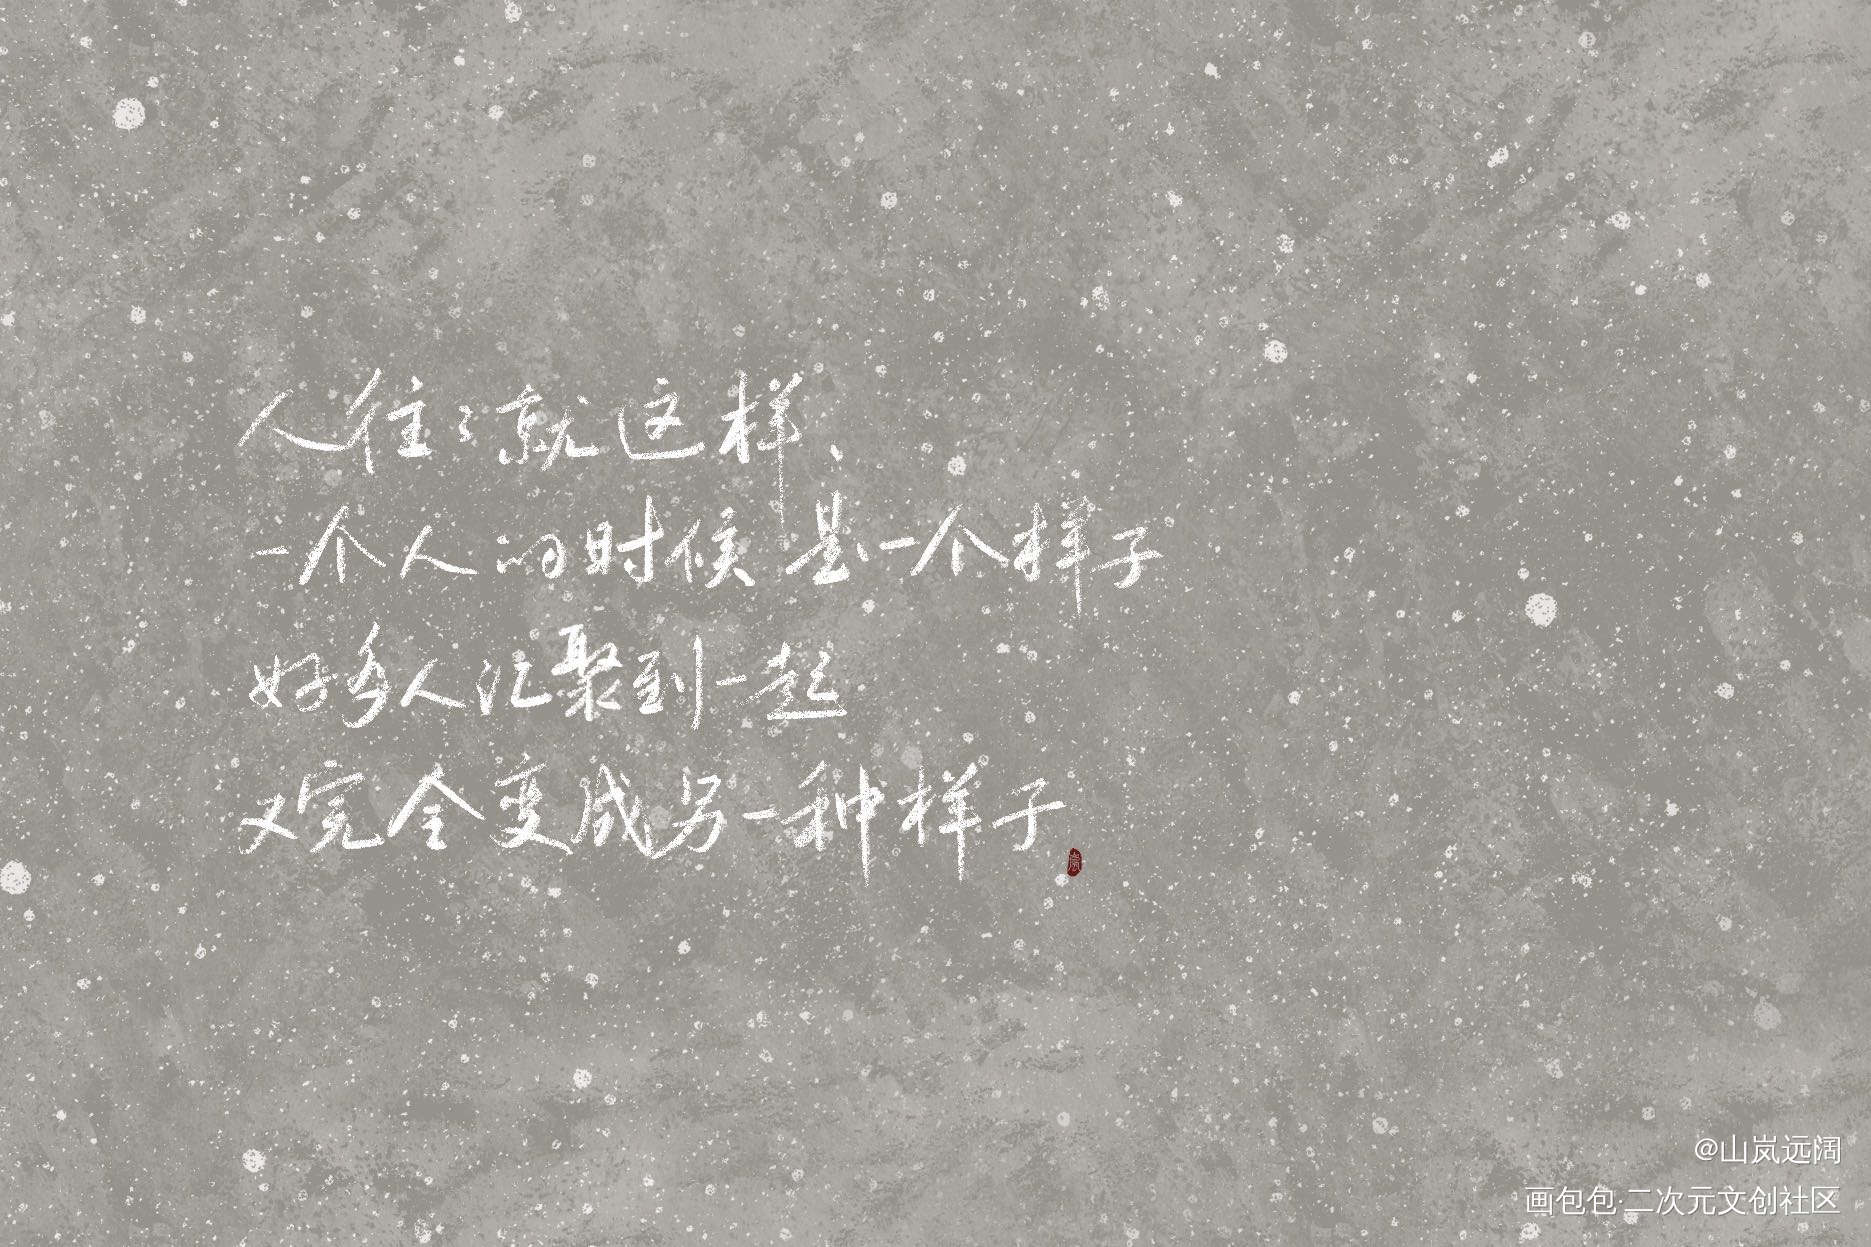 人往々就这样、
一个人的时候是一个样子
好多人汇聚到一起
又完全变成另一种样子
@山岚远阔
画包包·二次元文创社区